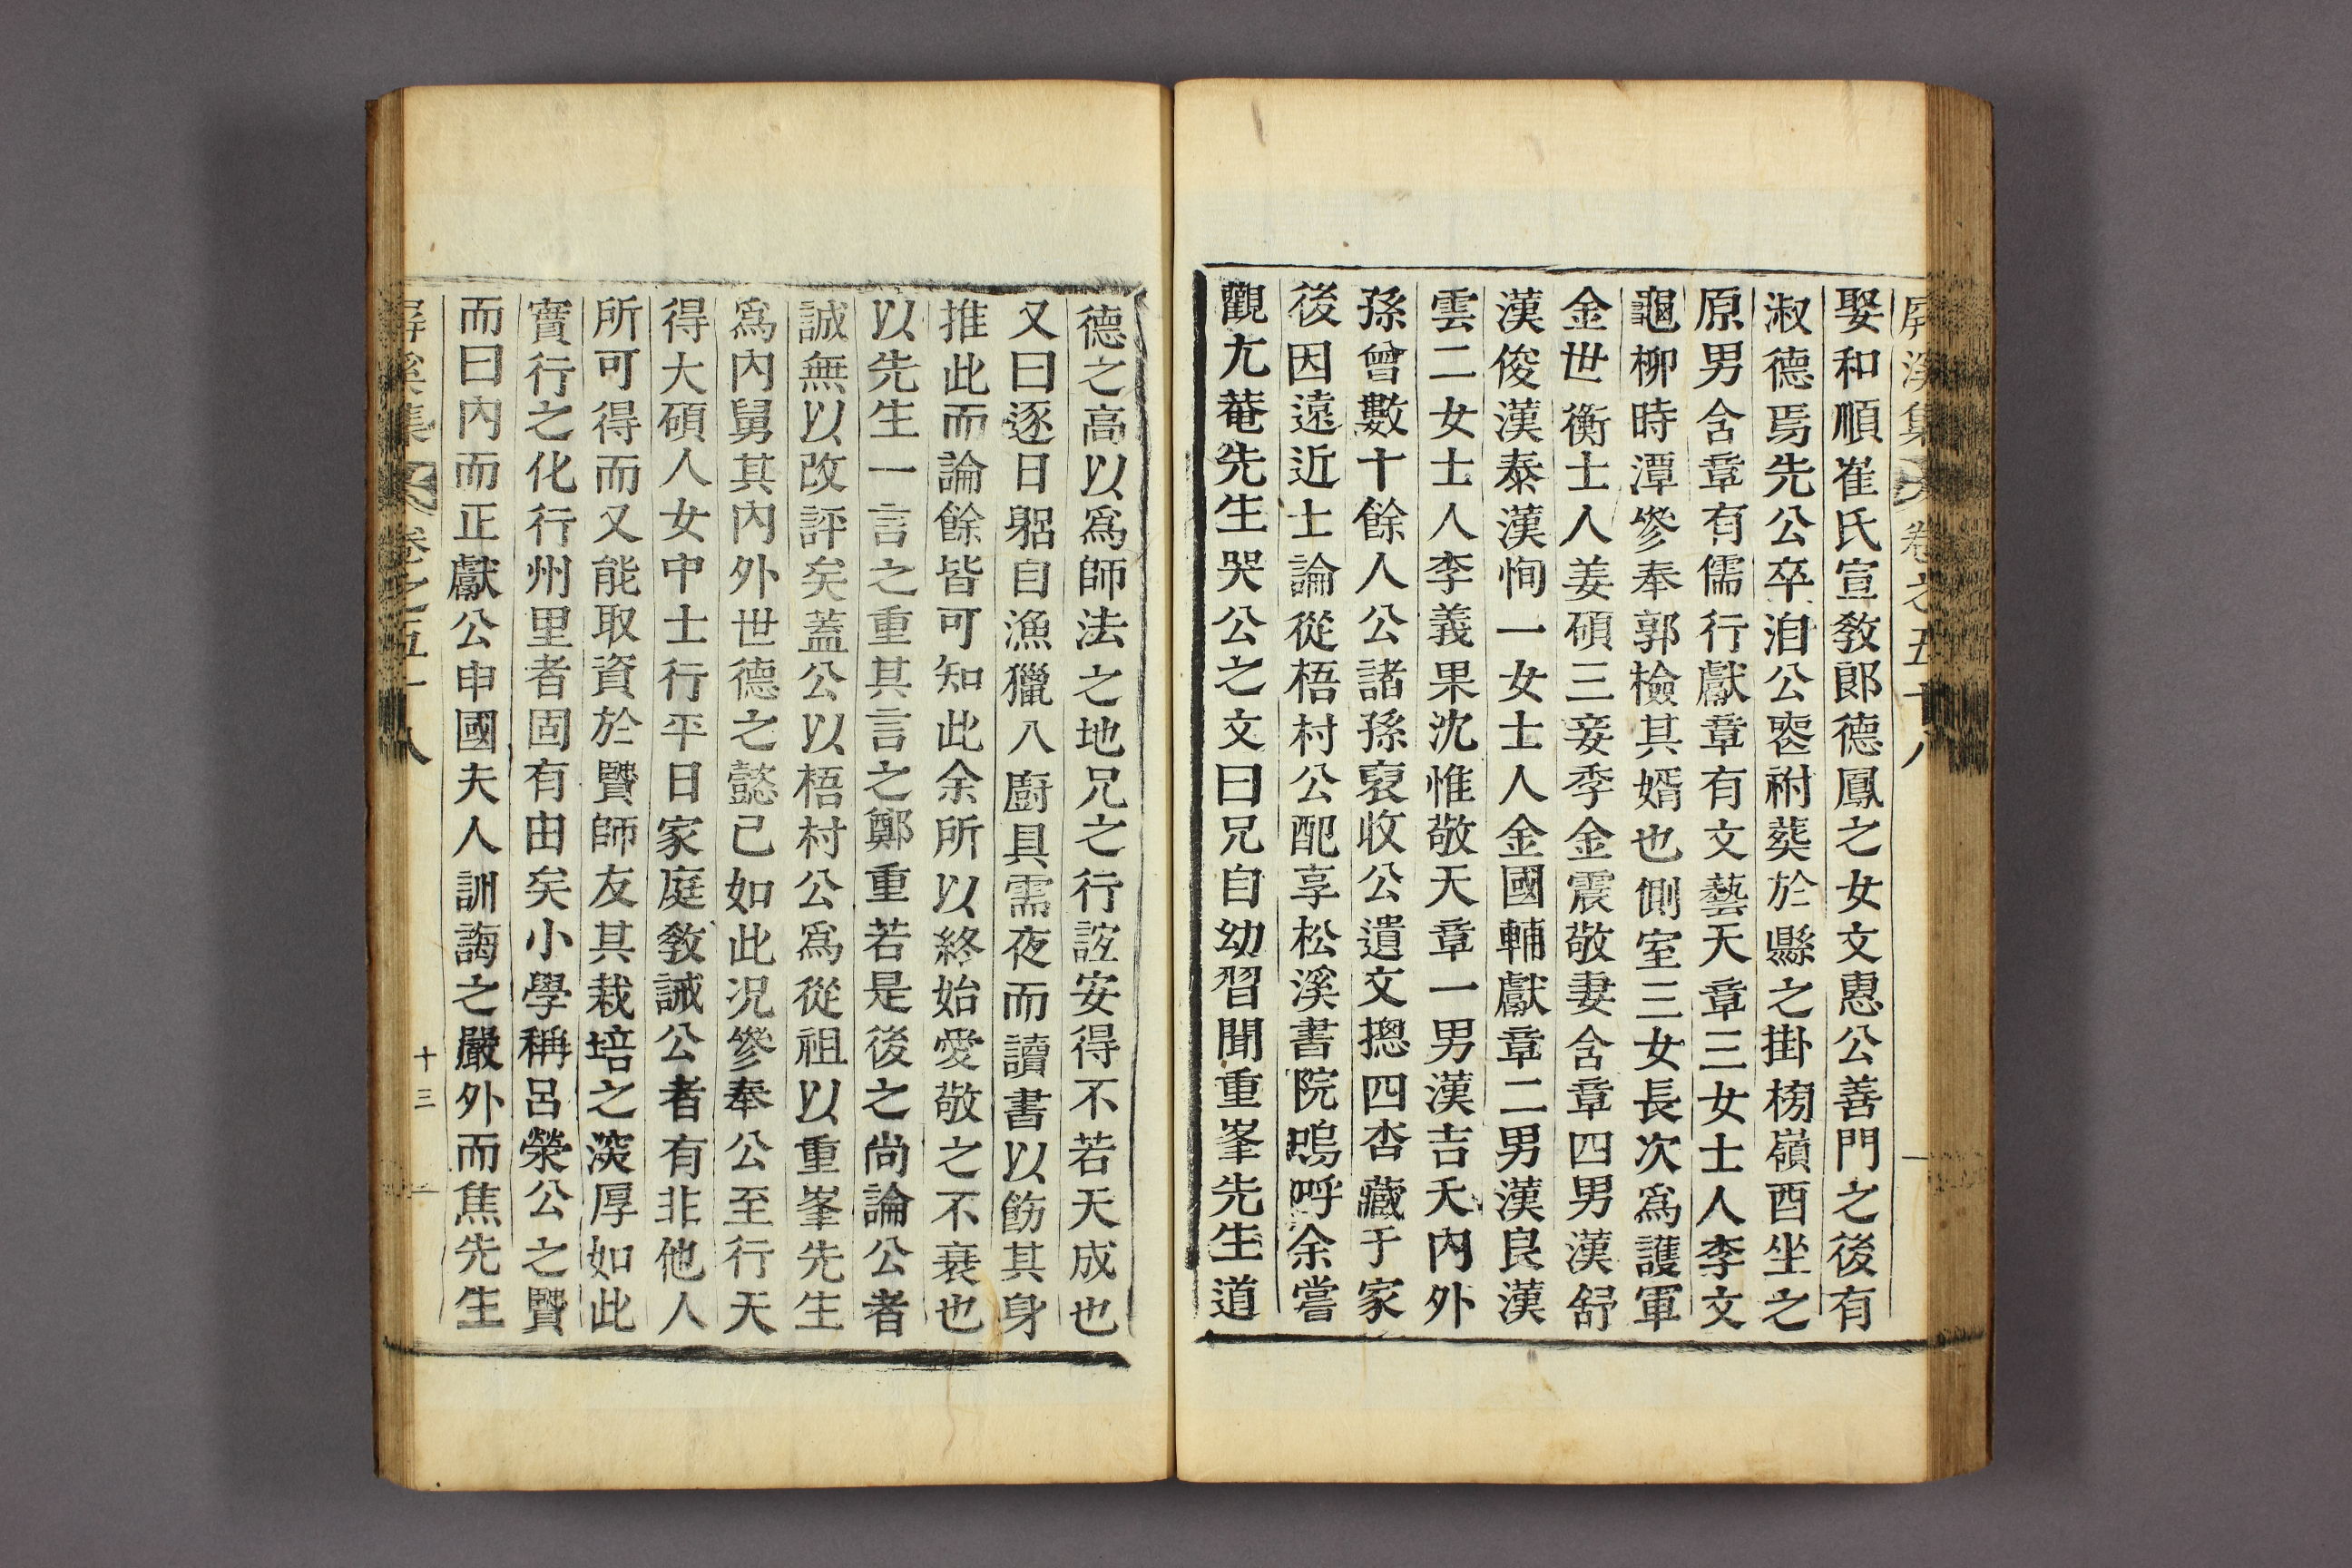 屛溪集 卷之五十八
娶和順崔氏宣敎郞德鳳之女文惠公善門之後有
淑德焉先公卒洎公喪祔葬於縣之掛榜嶺酉坐之
原男含章有儒行獻章有文藝天章三女士人李文
龜柳時潭參奉郭檢其婿也側室三女長次爲護軍
金世衡士人姜碩三妾季金震敬妻含章四男漢舒
漢俊漢泰漢恂一女士人金國輔獻章二男漢良漢
雲二女士人李義果沈惟敬天章一男漢吉夭內外
孫曾數十餘人公諸孫裒收公遺文摠四呇藏于家
後因遠近士論從梧村公配享松溪書院嗚呼余嘗
觀尤菴先生哭公之文曰兄自幼習聞重峯先生道
德之高以爲師法之地兄之行誼安得不若天成也
又曰逐日躬自漁獵入廚具需夜而讀書以飭其身
推此而論餘皆可知此余所以終始愛敬之不衰也
以先生一言之重其言之鄭重若是後之尙論公者
誠無以改評矣蓋公以梧村公爲從祖以重峯先生
爲內舅其內外世德之懿已如此况參奉公至行天
得大碩人女中士行平日家庭敎誡公者有非他人
所可得而又能取資於賢師友其栽培之深厚如此
實行之化行州里者固有由矣小學稱呂滎公之賢
而曰內而正獻公申國夫人訓誨之嚴外而焦先生
屛溪集 卷之五十八 十三